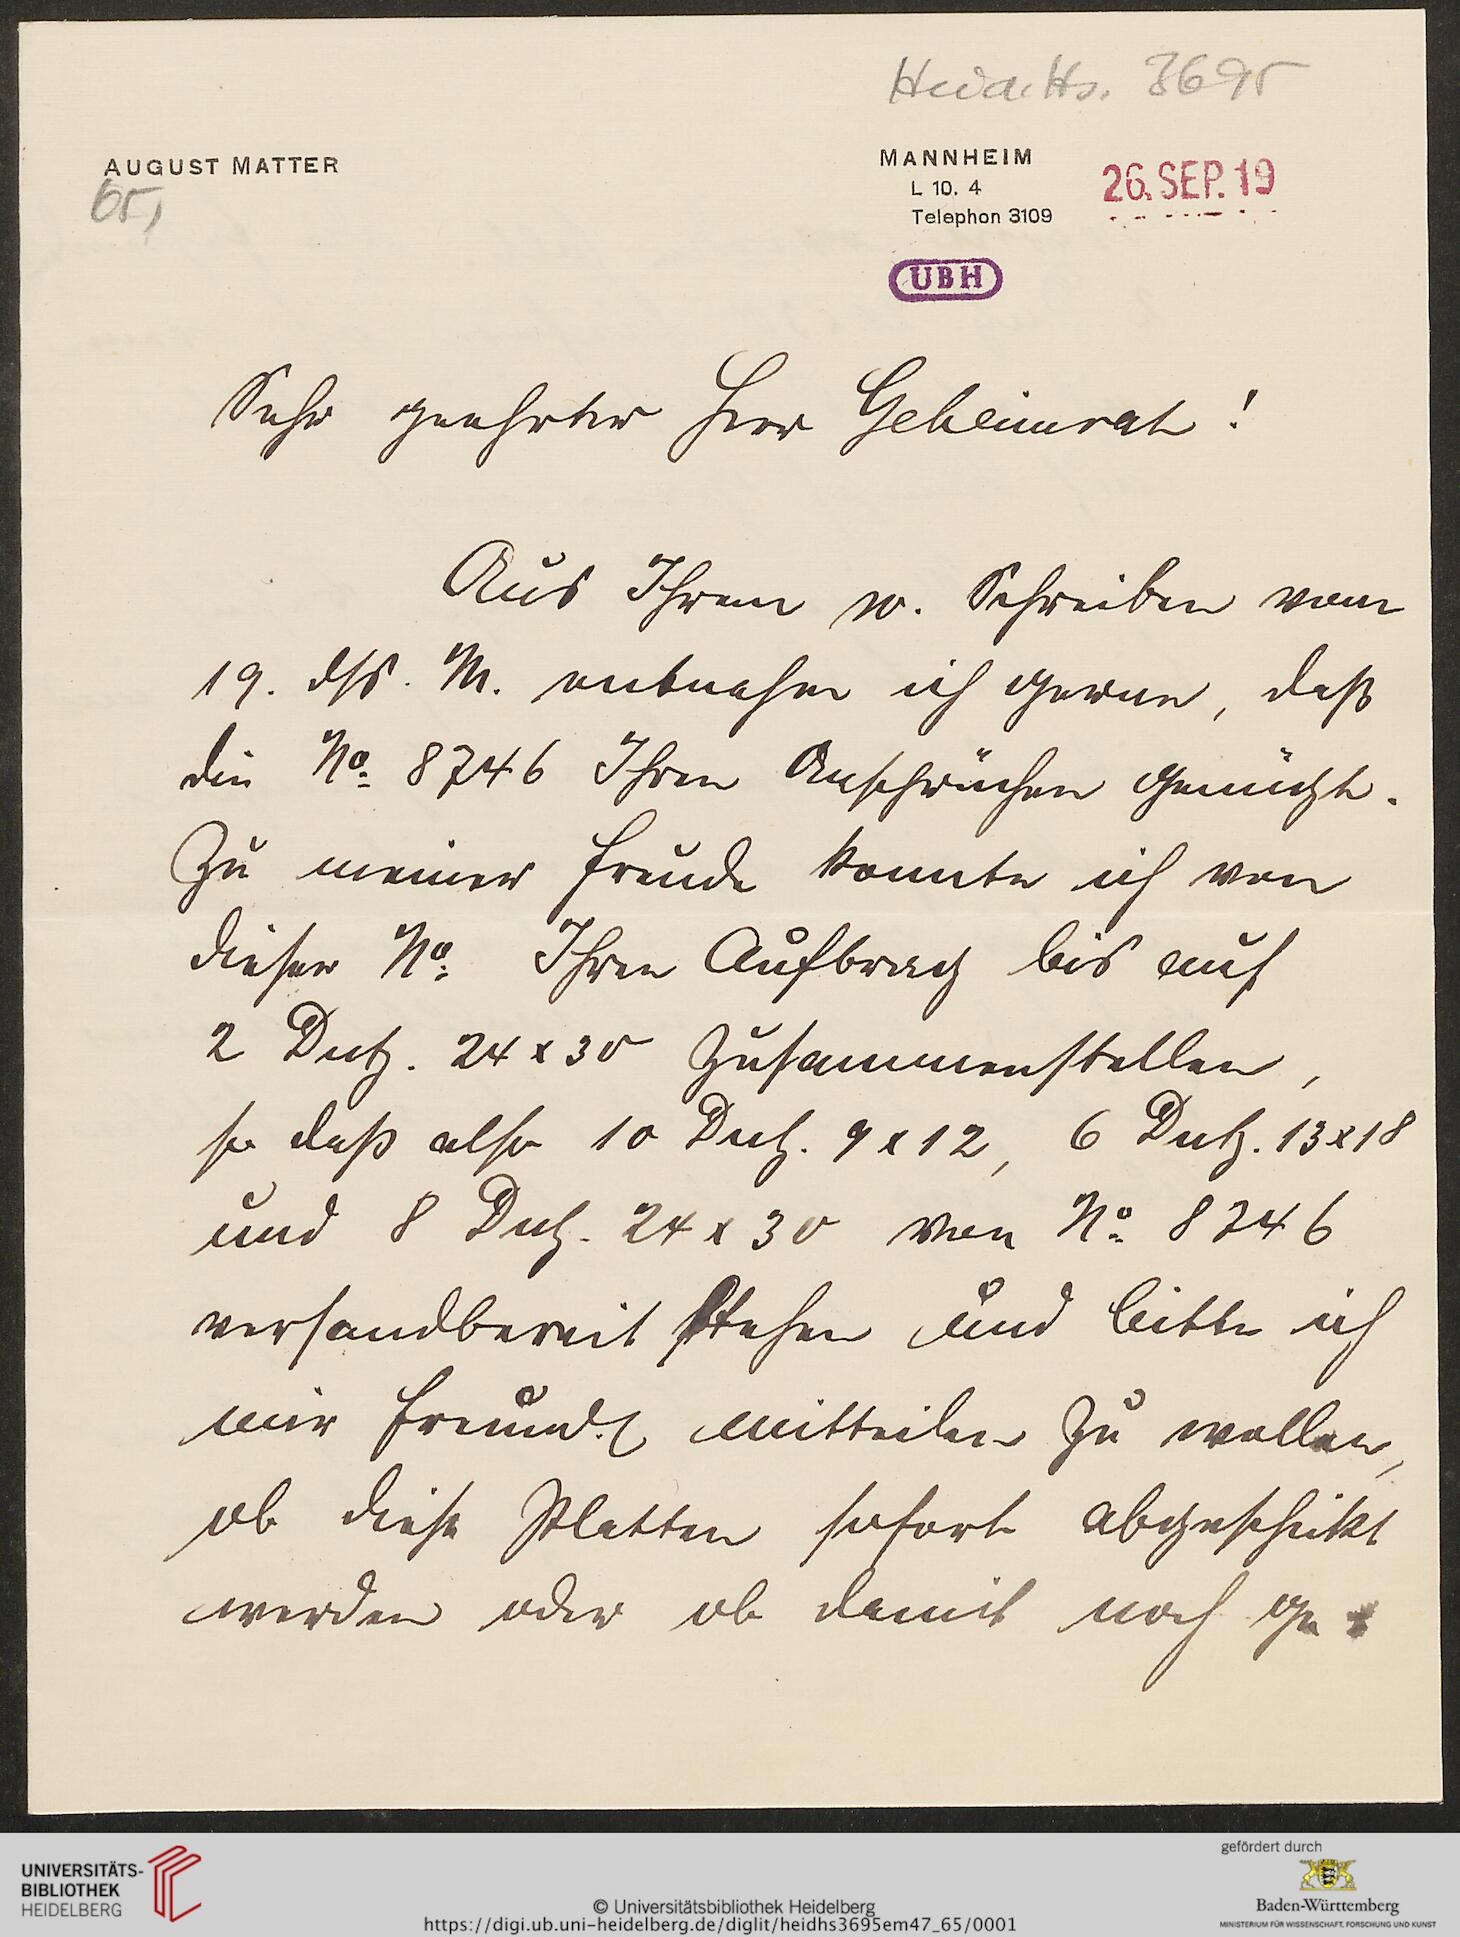 Heid. Hs. 3695
AUGUST MATTER
65,
MANNHEIM
L 10. 4
Telephon 3109
26. SEP. 19
UBH
Sehr geehrter Herr Geheimrat!
Aus Ihrem w. Schreiben vom
19. dss. M. entnehme ich gerne, daß
die No. 8746 Ihren Ansprüchen genügt.
Zu meiner Freude konnte ich von
dieser No. Ihren Auftrag bis auf
2 Dutz. 24 x 30 zusammenstellen,
so daß also 10 Dutz. 9 x 12, 6 Dutz. 13 x 18
und 8 Dutz. 24 x 30 von No. 8746
versandbereit stehen und bitte ich
mir freundl. mitteilen zu wollen,
ob diese Platten sofort abgeschickt
werden oder ob damit noch ge-
UNIVERSITÄTS-
BIBLIOTHEK
HEIDELBERG
© Universitätsbibliothek Heidelberg
https://digi.ub.uni-heidelberg.de/diglit/heidhs3695em47_65/0001
gefördert durch
Baden-Württemberg
MINISTERIUM FÜR WISSENSCHAFT, FORSCHUNG UND KUNST